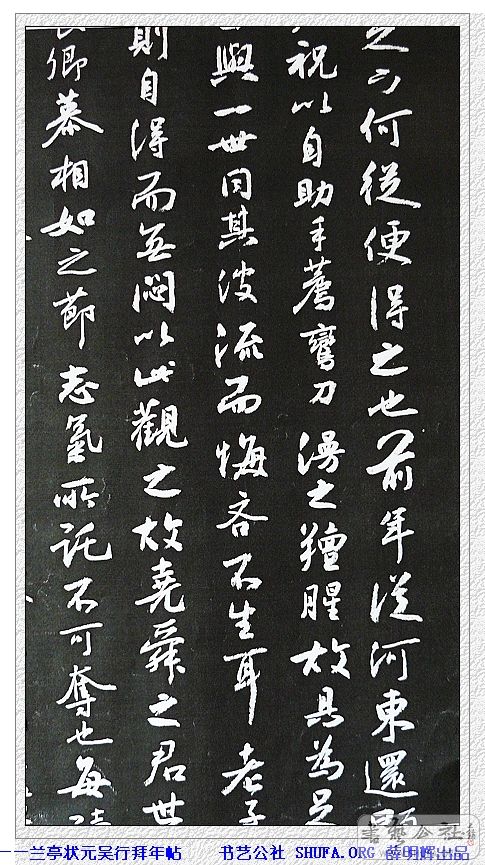 下何從便得之也前年從河東還
祝以自助手薦鸞刀漫之羶腥故具為足
與一世同其波流而悔吝不生耳老子
則自得而無悶以此觀之故堯舜之君世
卿慕相如之節志氣所託不可奪也每
書藝公社
一一兰亭状元吴行拜年帖 书艺公社 SHUFA.ORG 薛明辉出品